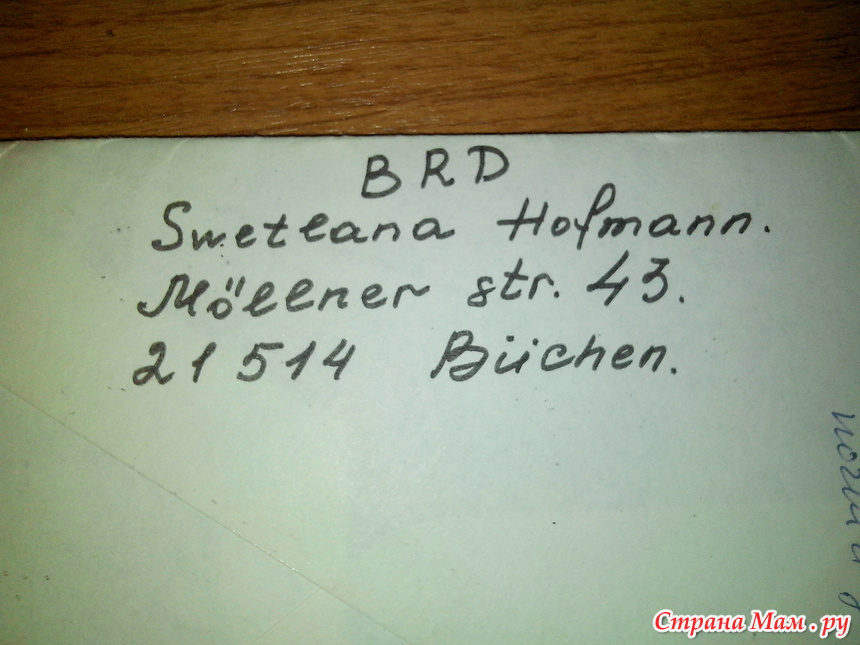 BRD
Swetlana Hofmann.
Möllner str. 43.
21514 Büchen.
Страна Мам.ру